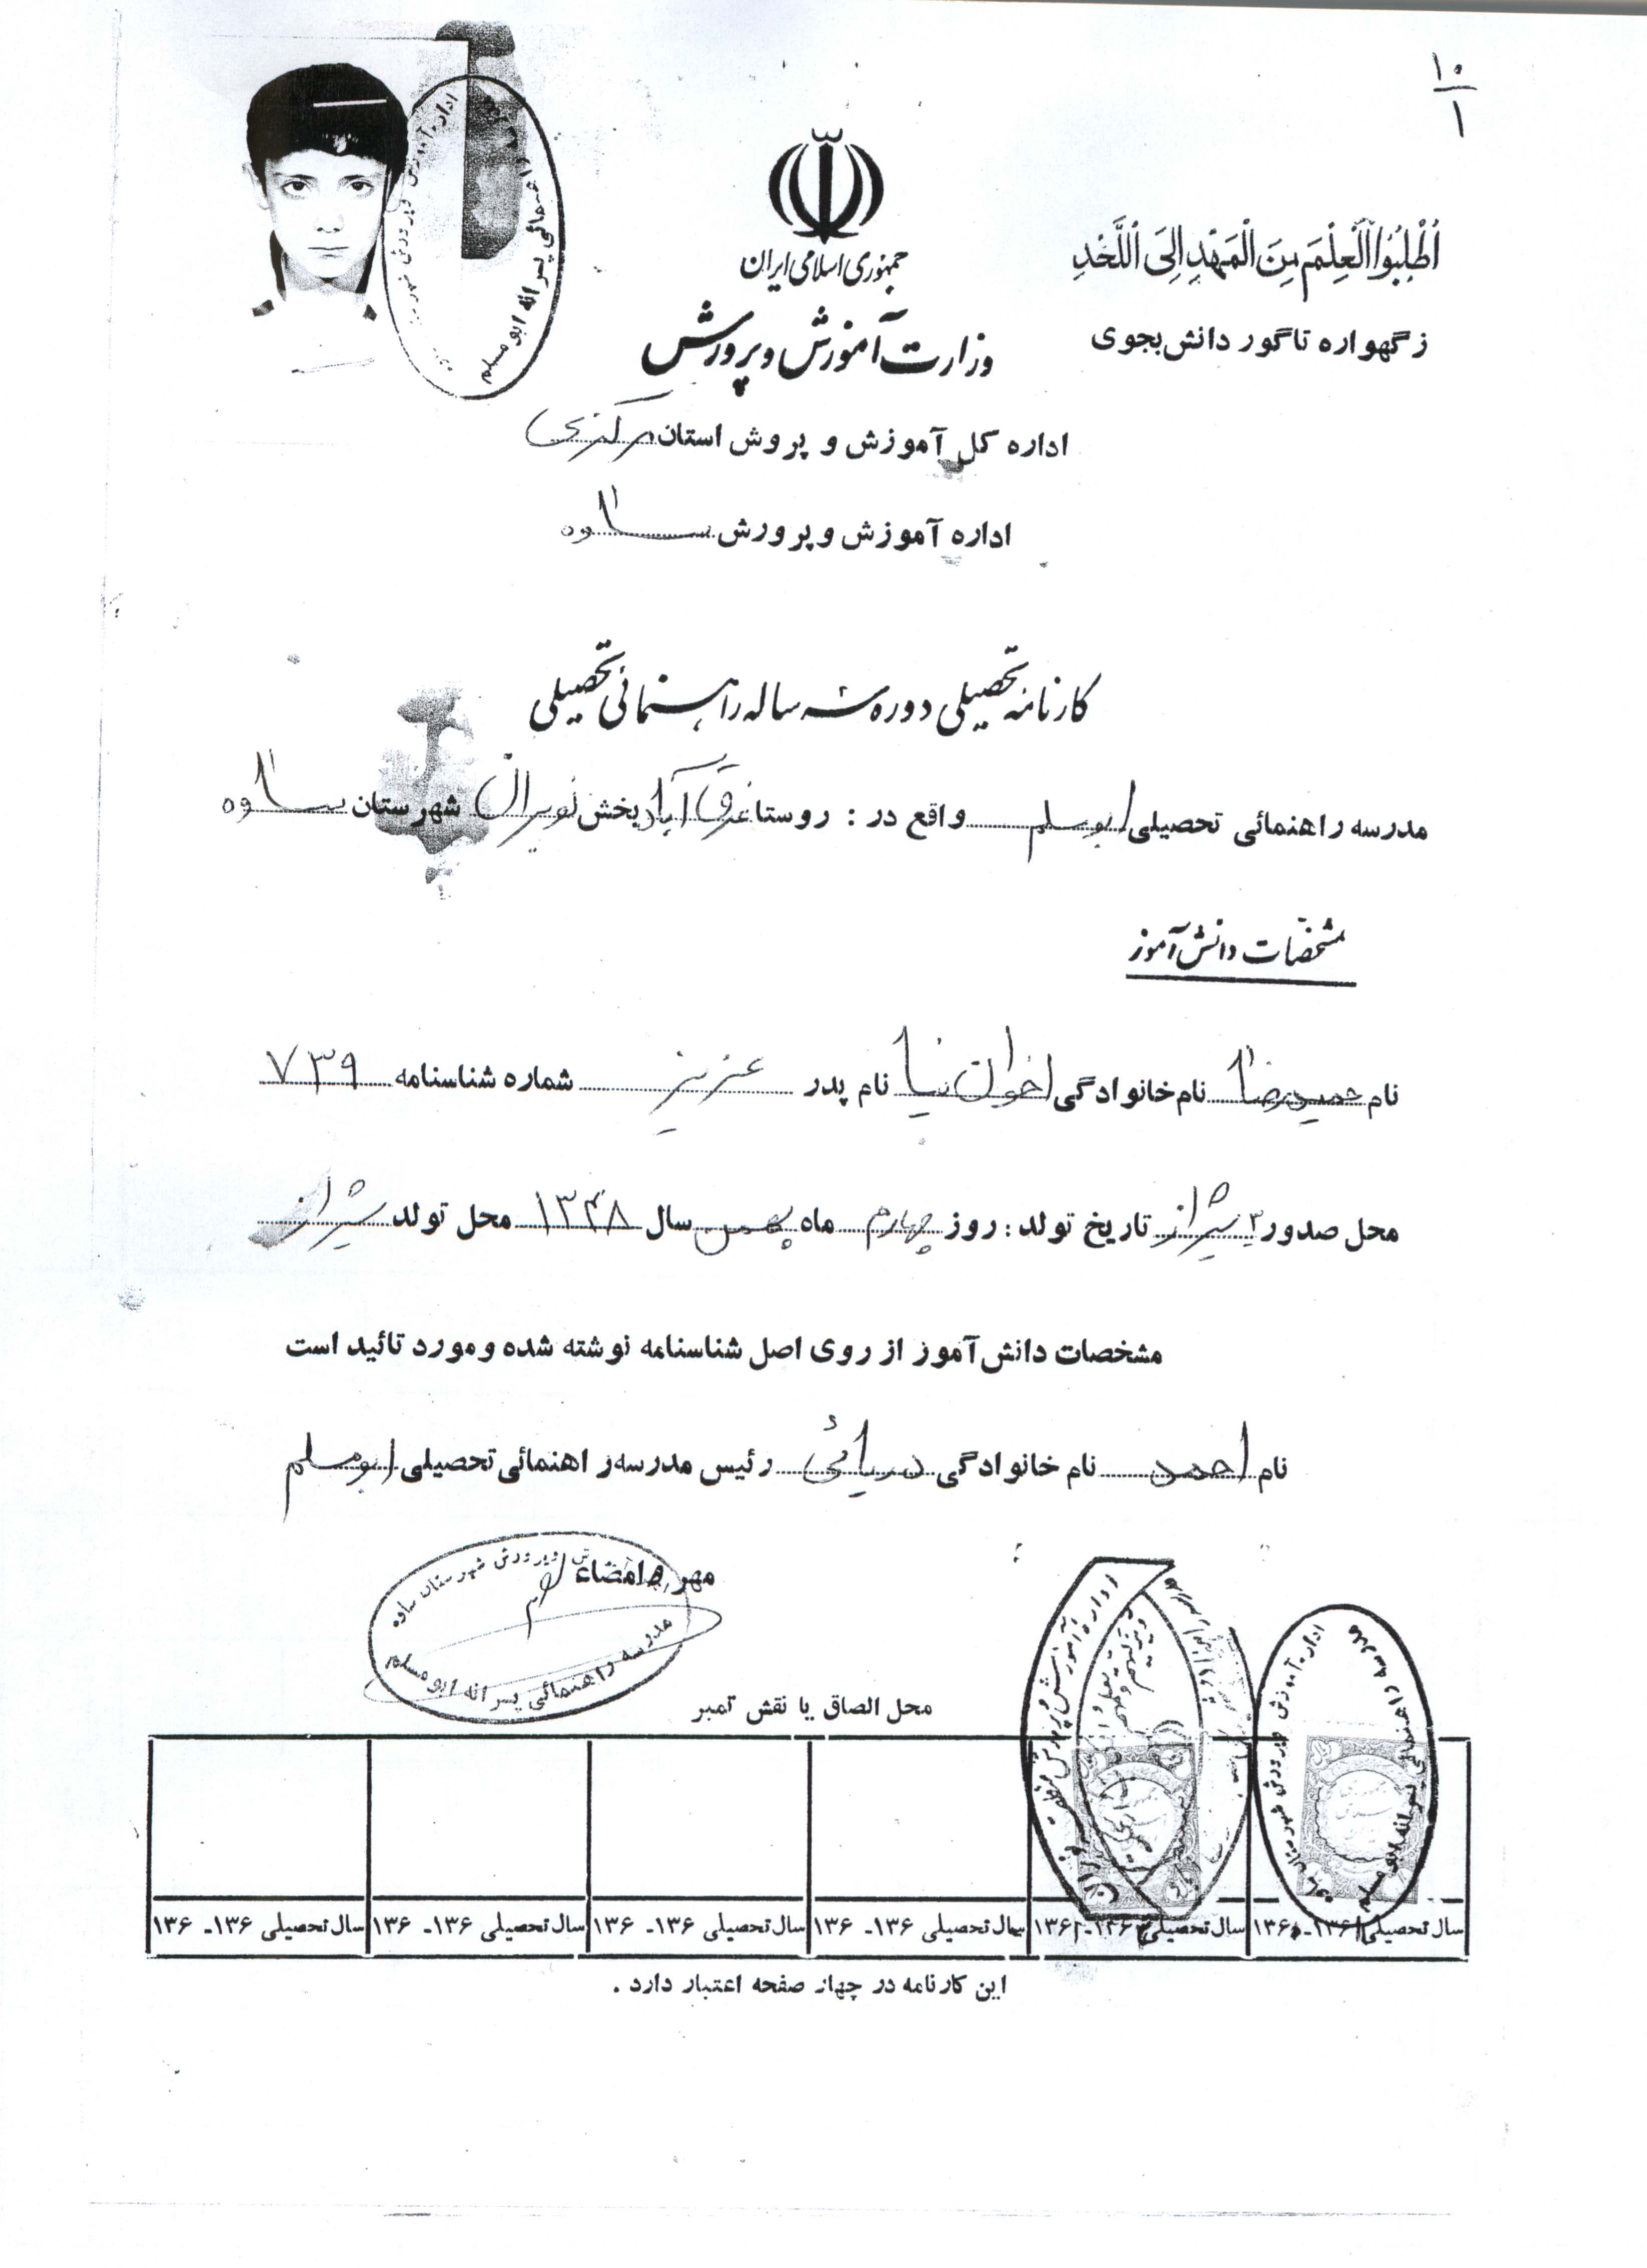 ۱۰
۱
جمهوری اسلامی ایران
اُطْلِبُوا الْعِلْمَ مِنَ الْمَهْدِ اِلَی اللَّحْدِ
ز گهواره تا گور دانش بجوی
وزارت آموزش و پرورش
اداره کل آموزش و پروش استان مرکزی
اداره آموزش و پرورش ساوه
کارنامه تحصیلی دوره سه ساله راهنمائی تحصیلی
مدرسه راهنمائی تحصیلی ابومسلم واقع در : روستا غرق آباد بخش نوبران شهرستان ساوه
مشخصات دانش آموز
نام حمیدرضا نام خانوادگی اخوان نیا نام پدر عزیز شماره شناسنامه ۷۳۹
محل صدور ۳ شیراز تاریخ تولد : روز چهارم ماه بهمن سال ۱۳۴۸ محل تولد شیراز
مشخصات دانش آموز از روی اصل شناسنامه نوشته شده و مورد تائید است
نام احمد نام خانوادگی دریائی رئیس مدرسه راهنمائی تحصیلی ابومسلم
مهر و امضاء
پرورش شهرستان ساوه
مدرسه راهنمائی پسرانه ابومسلم
محل الصاق یا نقش تمبر
اداره آموزش و پرورش شهرستان ساوه
مدرسه راهنمائی پسرانه ابومسلم
سال تحصیلی ۱۳۶۱-۱۳۶۰ سال تحصیلی ۱۳۶۲-۱۳۶۱ سال تحصیلی ۱۳۶ -۱۳۶ سال تحصیلی ۱۳۶ -۱۳۶ سال تحصیلی ۱۳۶ -۱۳۶ سال تحصیلی ۱۳۶ -۱۳۶
این کارنامه در چهار صفحه اعتبار دارد .